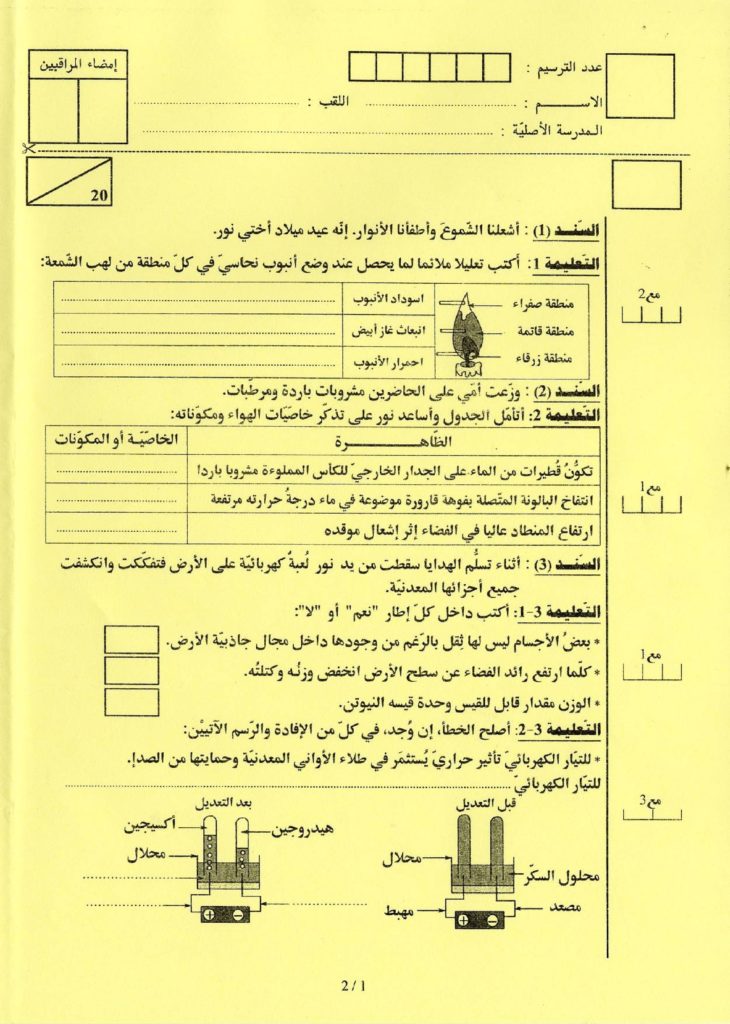 إمضاء المراقبين
عدد الترسيم :
الاســـــم : ........ اللقب : ........
المدرسة الأصليّة : ........
20
السّنــد (1) : أشعلنا الشّموعَ وأطفأنا الأنوار. إنّه عيد ميلاد أختي نور.
التّعليمة 1: أكتب تعليلا ملائما لما يحصل عند وضع أنبوب نحاسيّ في كلّ منطقة من لهب الشّمعة:
مع2
منطقة صفراء
اسوداد الأنبوب
منطقة قاتمة
انبعاث غاز أبيض
منطقة زرقاء
احمرار الأنبوب
السّنــد (2) : وزّعت أمّي على الحاضرين مشروبات باردة ومرطّبات.
التّعليمة 2: أتأمّل الجدول وأساعد نور على تذكّر خاصّيات الهواء ومكوّناته:
الظّاهـــــــرة
الخاصّيّـة أو المكوّنات
تكوُّنُ قُطيرات من الماء على الجدار الخارجيّ للكأس المملوءة مشروبا باردا
مع1
انتفاخ البالونة المتّصلة بفوهة قارورة موضوعة في ماء درجةُ حرارته مرتفعة
ارتفاع المنطاد عاليا في الفضاء إثر إشعال موقده
السّنــد (3) : أثناء تسلُّم الهدايا سقطت من يد نور لُعبةٌ كهربائيّة على الأرض فتفكّكت وانكشفت
جميع أجزائها المعدنيّة.
التّعليمة 3-1: أكتب داخل كلّ إطار "نعم" أو "لا":
* بعضُ الأجسام ليس لها ثِقل بالرّغم من وجودها داخل مجال جاذبيّة الأرض.
مع1
* كلّما ارتفع رائد الفضاء عن سطح الأرض انخفض وزنُه وكتلتُه.
* الوزن مقدار قابل للقيس وحدة قيسه النيوتن.
التّعليمة 3-2: أصلح الخطأ، إن وُجد، في كلّ من الإفادة والرّسم الآتييْن:
* للتيّار الكهربائيّ تأثير حراريّ يُستثمَر في طلاء الأواني المعدنيّة وحمايتها من الصدإ.
للتيّار الكهربائيّ ........
مع3
قبل التعديل
بعد التعديل
محلال
محلول السكّر
مهبط
مصعد
أكسيجين
هيدروجين
محلال
2 / 1